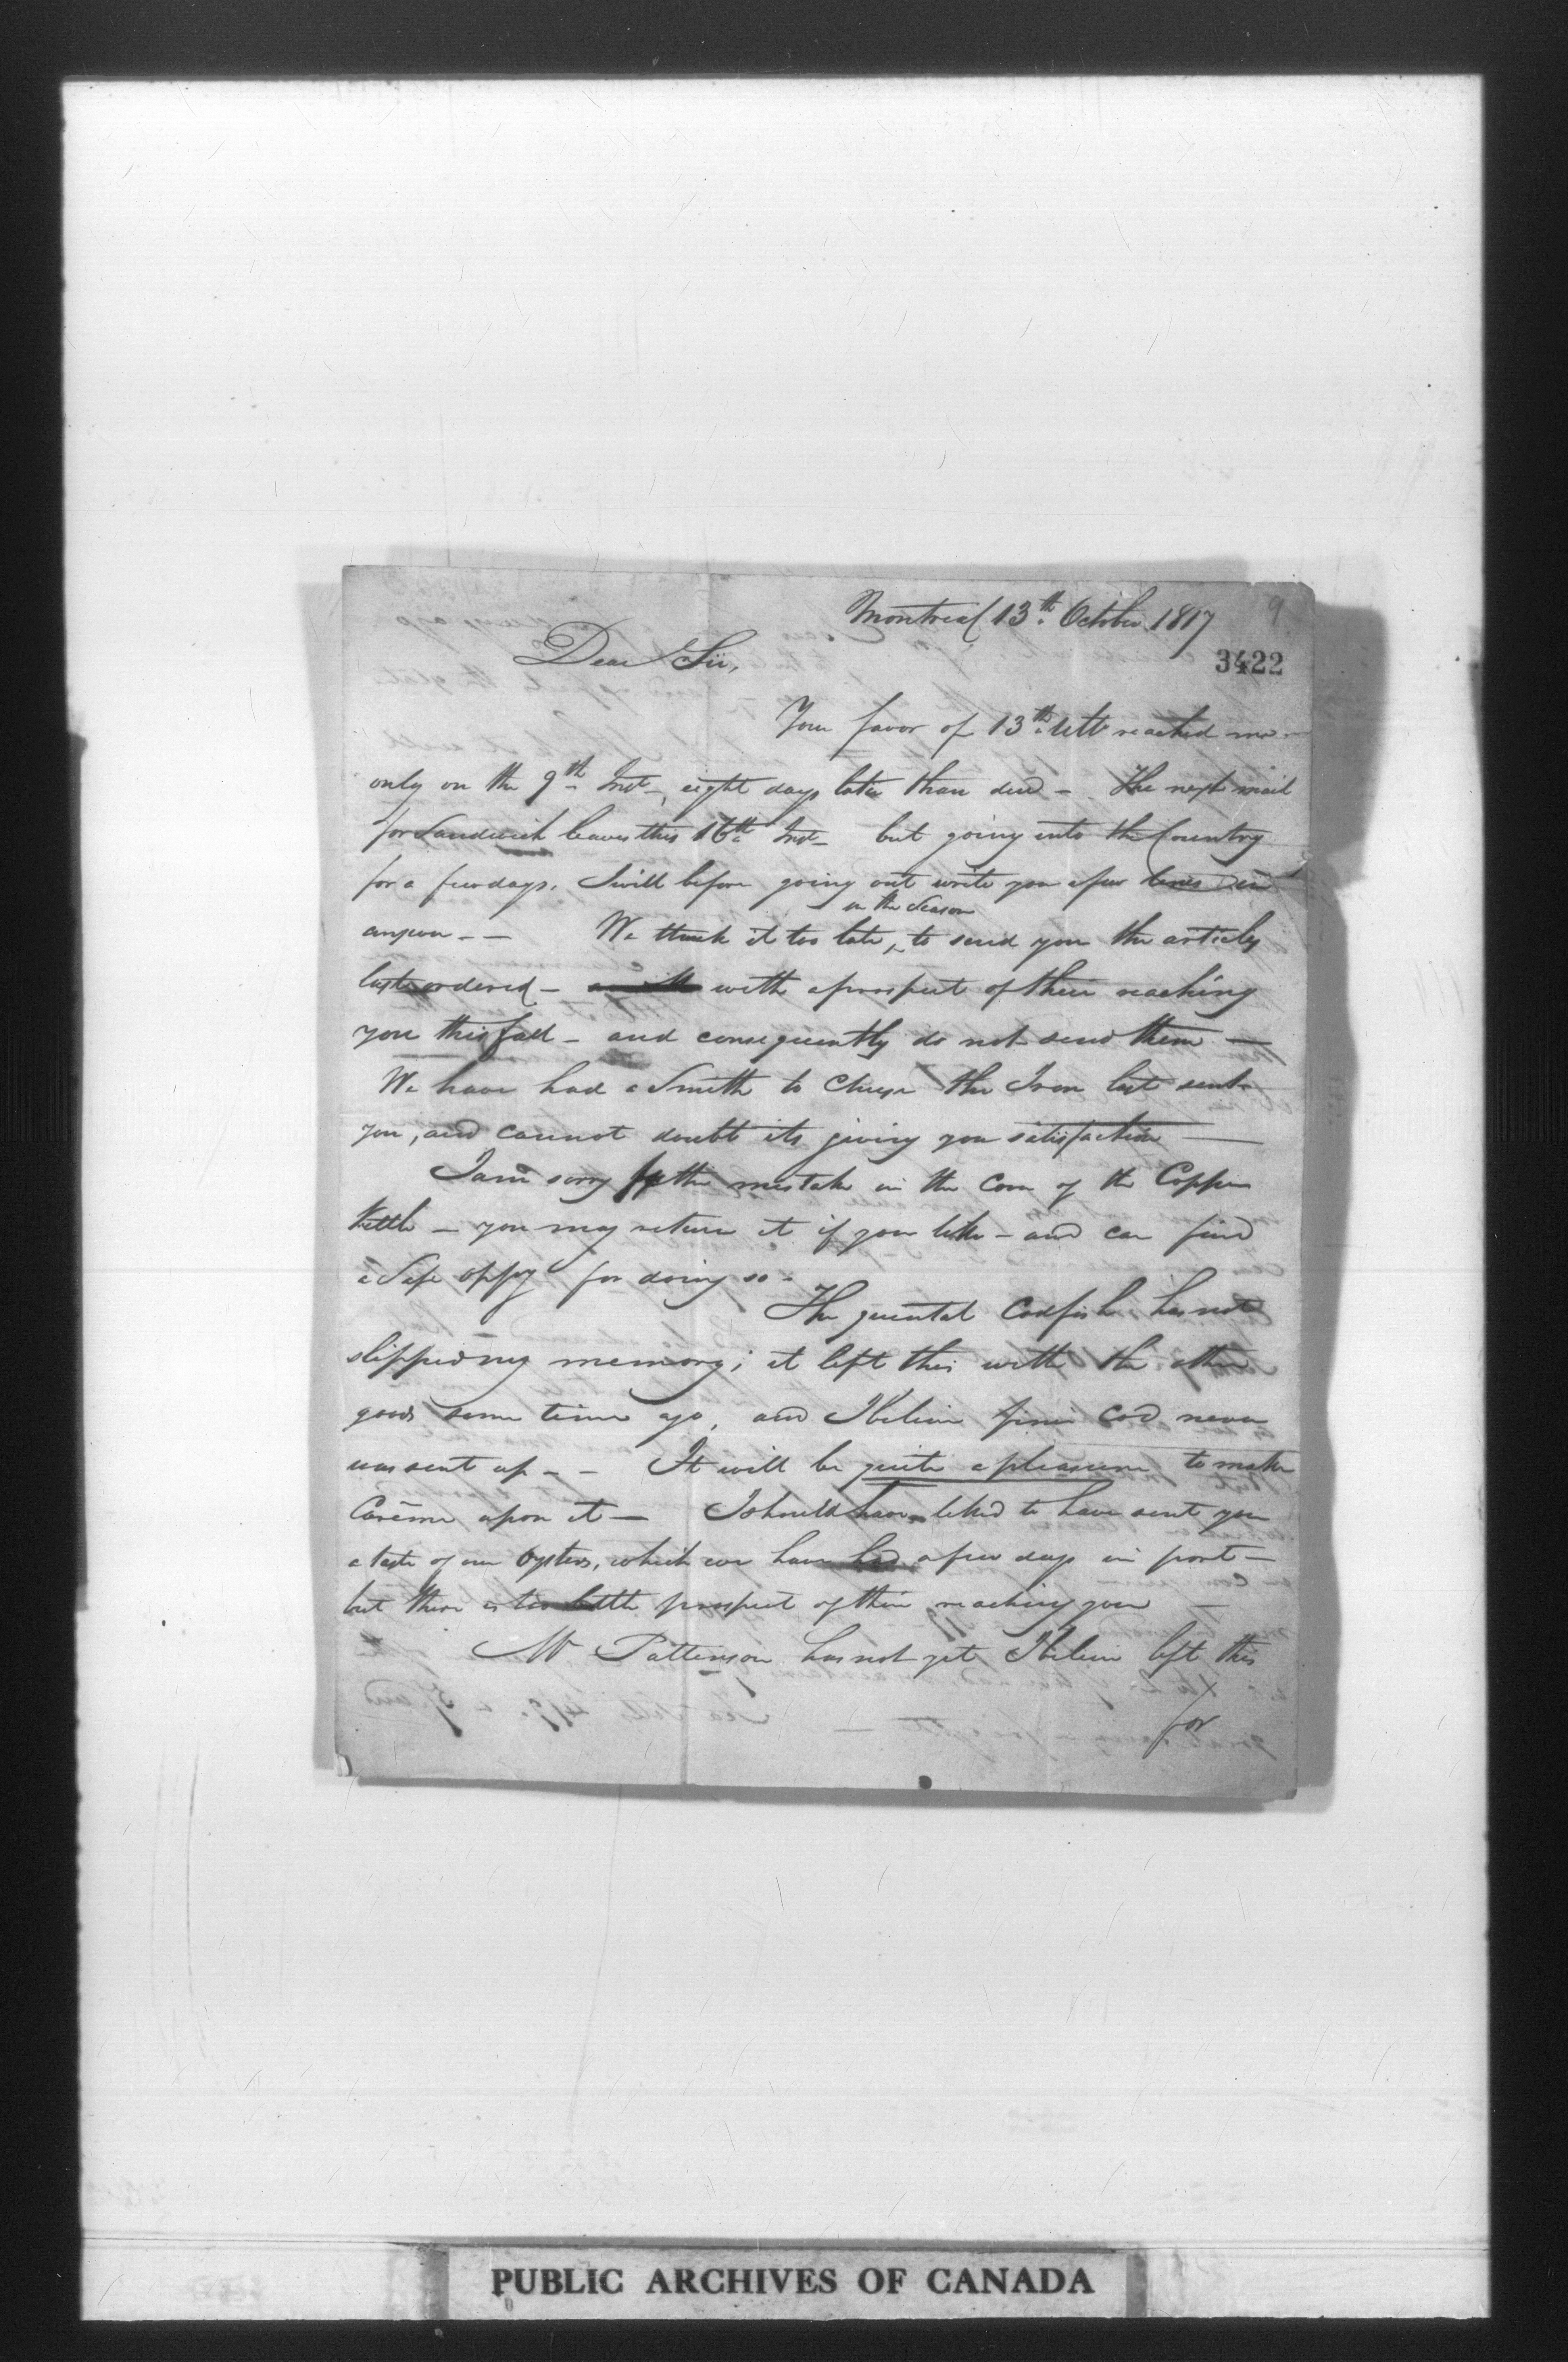 Montreal 13th October 1817
9
3422
Dear Sir,
Your favor of 13th Ulto reached me
only on the 9th Inst, eight days later than due - The next mail
for Sandwich leaves this 16th Inst - but going into the Country
for a few days, I will before going out write you a few lines in
answer - - We think it too late, in the Season to send you the articles
last ordered - with a prospect of their reaching
you this fall - and consequently do not send them -
We have had a Smith to Chuse the Iron last sent
you, and cannot doubt its giving you satisfaction -
I am sorry for the mistake in the Cover of the Copper
Kettle - you may return it if you like - and can find
a Safe oppy for doing so -
The quintal Codfish has not
slipped my memory; it left this with the other
goods some time ago, and I believe finer Cod never
was sent up - - It will be quite a pleasure to make
Carême upon it - I should have liked to have sent you
a taste of our Oysters, which we have had a few days in port -
but there is too little prospect of their reaching you -
Mr Pattinson has not yet I believe left this
for
PUBLIC ARCHIVES OF CANADA